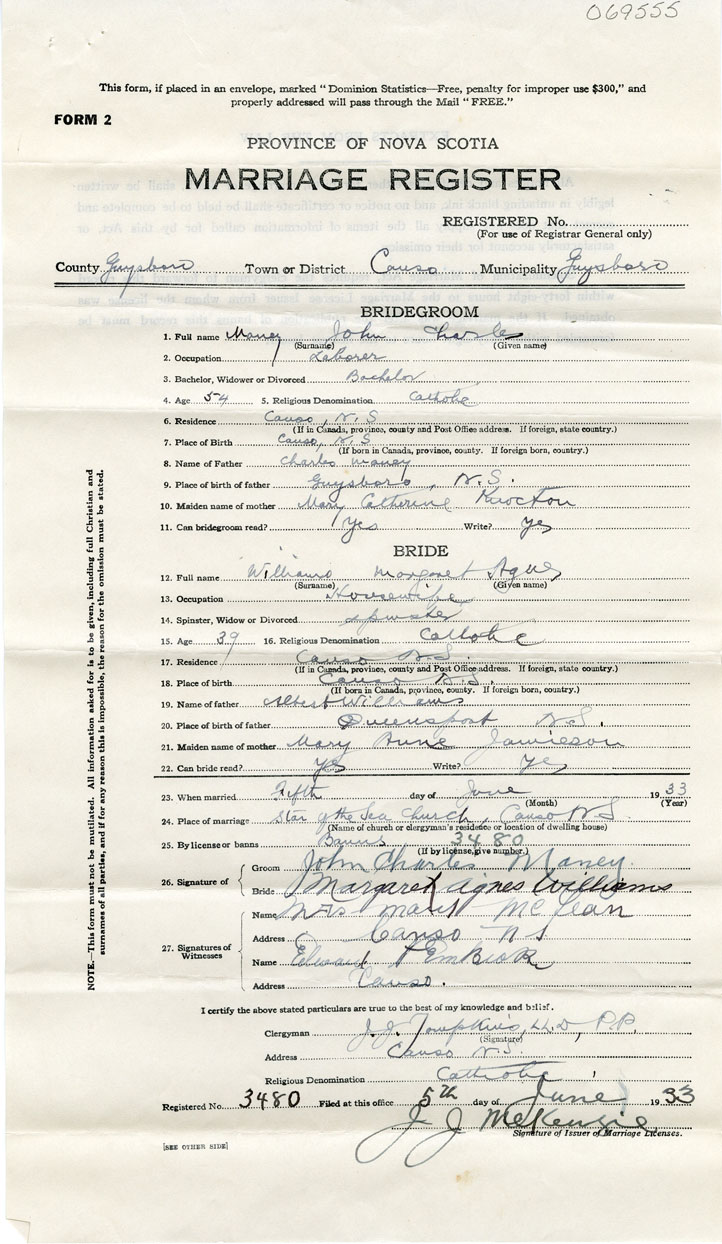 069555
This form, if placed in an envelope, marked "Dominion Statistics—Free, penalty for improper use $300," and
properly addressed will pass through the Mail "FREE."
FORM 2
PROVINCE OF NOVA SCOTIA
MARRIAGE REGISTER
REGISTERED No.
(For use of Registrar General only)
County Guysboro Town or District Canso Municipality Guysboro
BRIDEGROOM
1. Full name Maney John Charles
(Surname) (Given name)
2. Occupation Laborer
3. Bachelor, Widower or Divorced Bachelor
4. Age 54 5. Religious Denomination Catholic
6. Residence Canso, N.S
(If in Canada, province, county and Post Office address. If foreign, state country.)
7. Place of Birth Canso, N.S
(If born in Canada, province, county. If foreign born, country.)
8. Name of Father Charles Maney
9. Place of birth of father Guysboro, N.S.
10. Maiden name of mother Mary Catherine
11. Can bridegroom read? Yes Write? yes
BRIDE
12. Full name Williams Margaret Agnes
(Surname) (Given name)
13. Occupation Housewife
14. Spinster, Widow or Divorced spinster
15. Age 39 16. Religious Denomination Catholic
17. Residence Canso N.S.
(If in Canada, province, county and Post Office address. If foreign, state country.)
18. Place of birth Canso N.S.
(If born in Canada, province, county. If foreign born, country.)
19. Name of father Albert Williams
20. Place of birth of father Queensport N.S.
21. Maiden name of mother Mary Anne Jamieson
22. Can bride read? yes Write? yes
23. When married Fifth day of June 1933
(Month) (Year)
24. Place of marriage Star of the Sea Church, Canso N S
(Name of church or clergyman's residence or location of dwelling house)
25. By license or banns Banns 3480
(If by license, give number.)
26. Signature of Groom John Charles Maney.
Bride Margaret Agnes Williams
27. Signatures of Witnesses
Name Mrs McLean
Address Canso N S
Name Edward
Address Canso.
I certify the above stated particulars are true to the best of my knowledge and belief.
Clergyman J.J. Tompkins, LL.D, P.P.
(Signature)
Address Canso N.S.
Religious Denomination Catholic
Registered No. 3480 Filed at this office 5th day of June 1933
J J McKenzie
Signature of Issuer of Marriage Licenses.
[SEE OTHER SIDE]
NOTE.—This form must not be mutilated. All information asked for is to be given, including full Christian and
surnames of all parties, and if for any reason this is impossible, the reason for the omission must be stated.